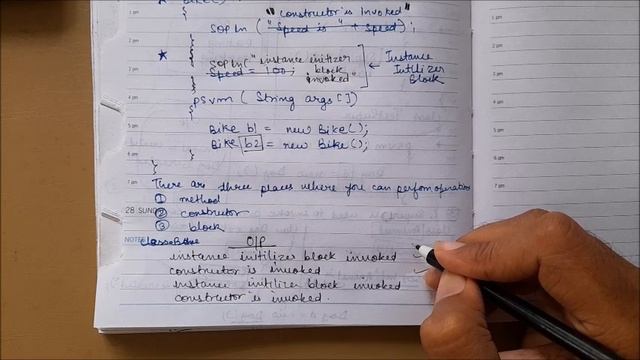 "constructor is Invoked"
SOPln ("Speed is " + Speed);
}
{
SOPln("instance initlizer
Speed = 100; block
invoked"
Instance
Intilizer
Block
}
psvm ( String args[])
{
Bike b1 = new Bike();
Bike b2 = new Bike();
}
}
There are three places where you can perfom operations
① method
② constructor
③ block
28 SUN
NOTES
O/P
instance initilizer block invoked
constructor is invoked
instance initilizer block invoked
constructor is invoked.